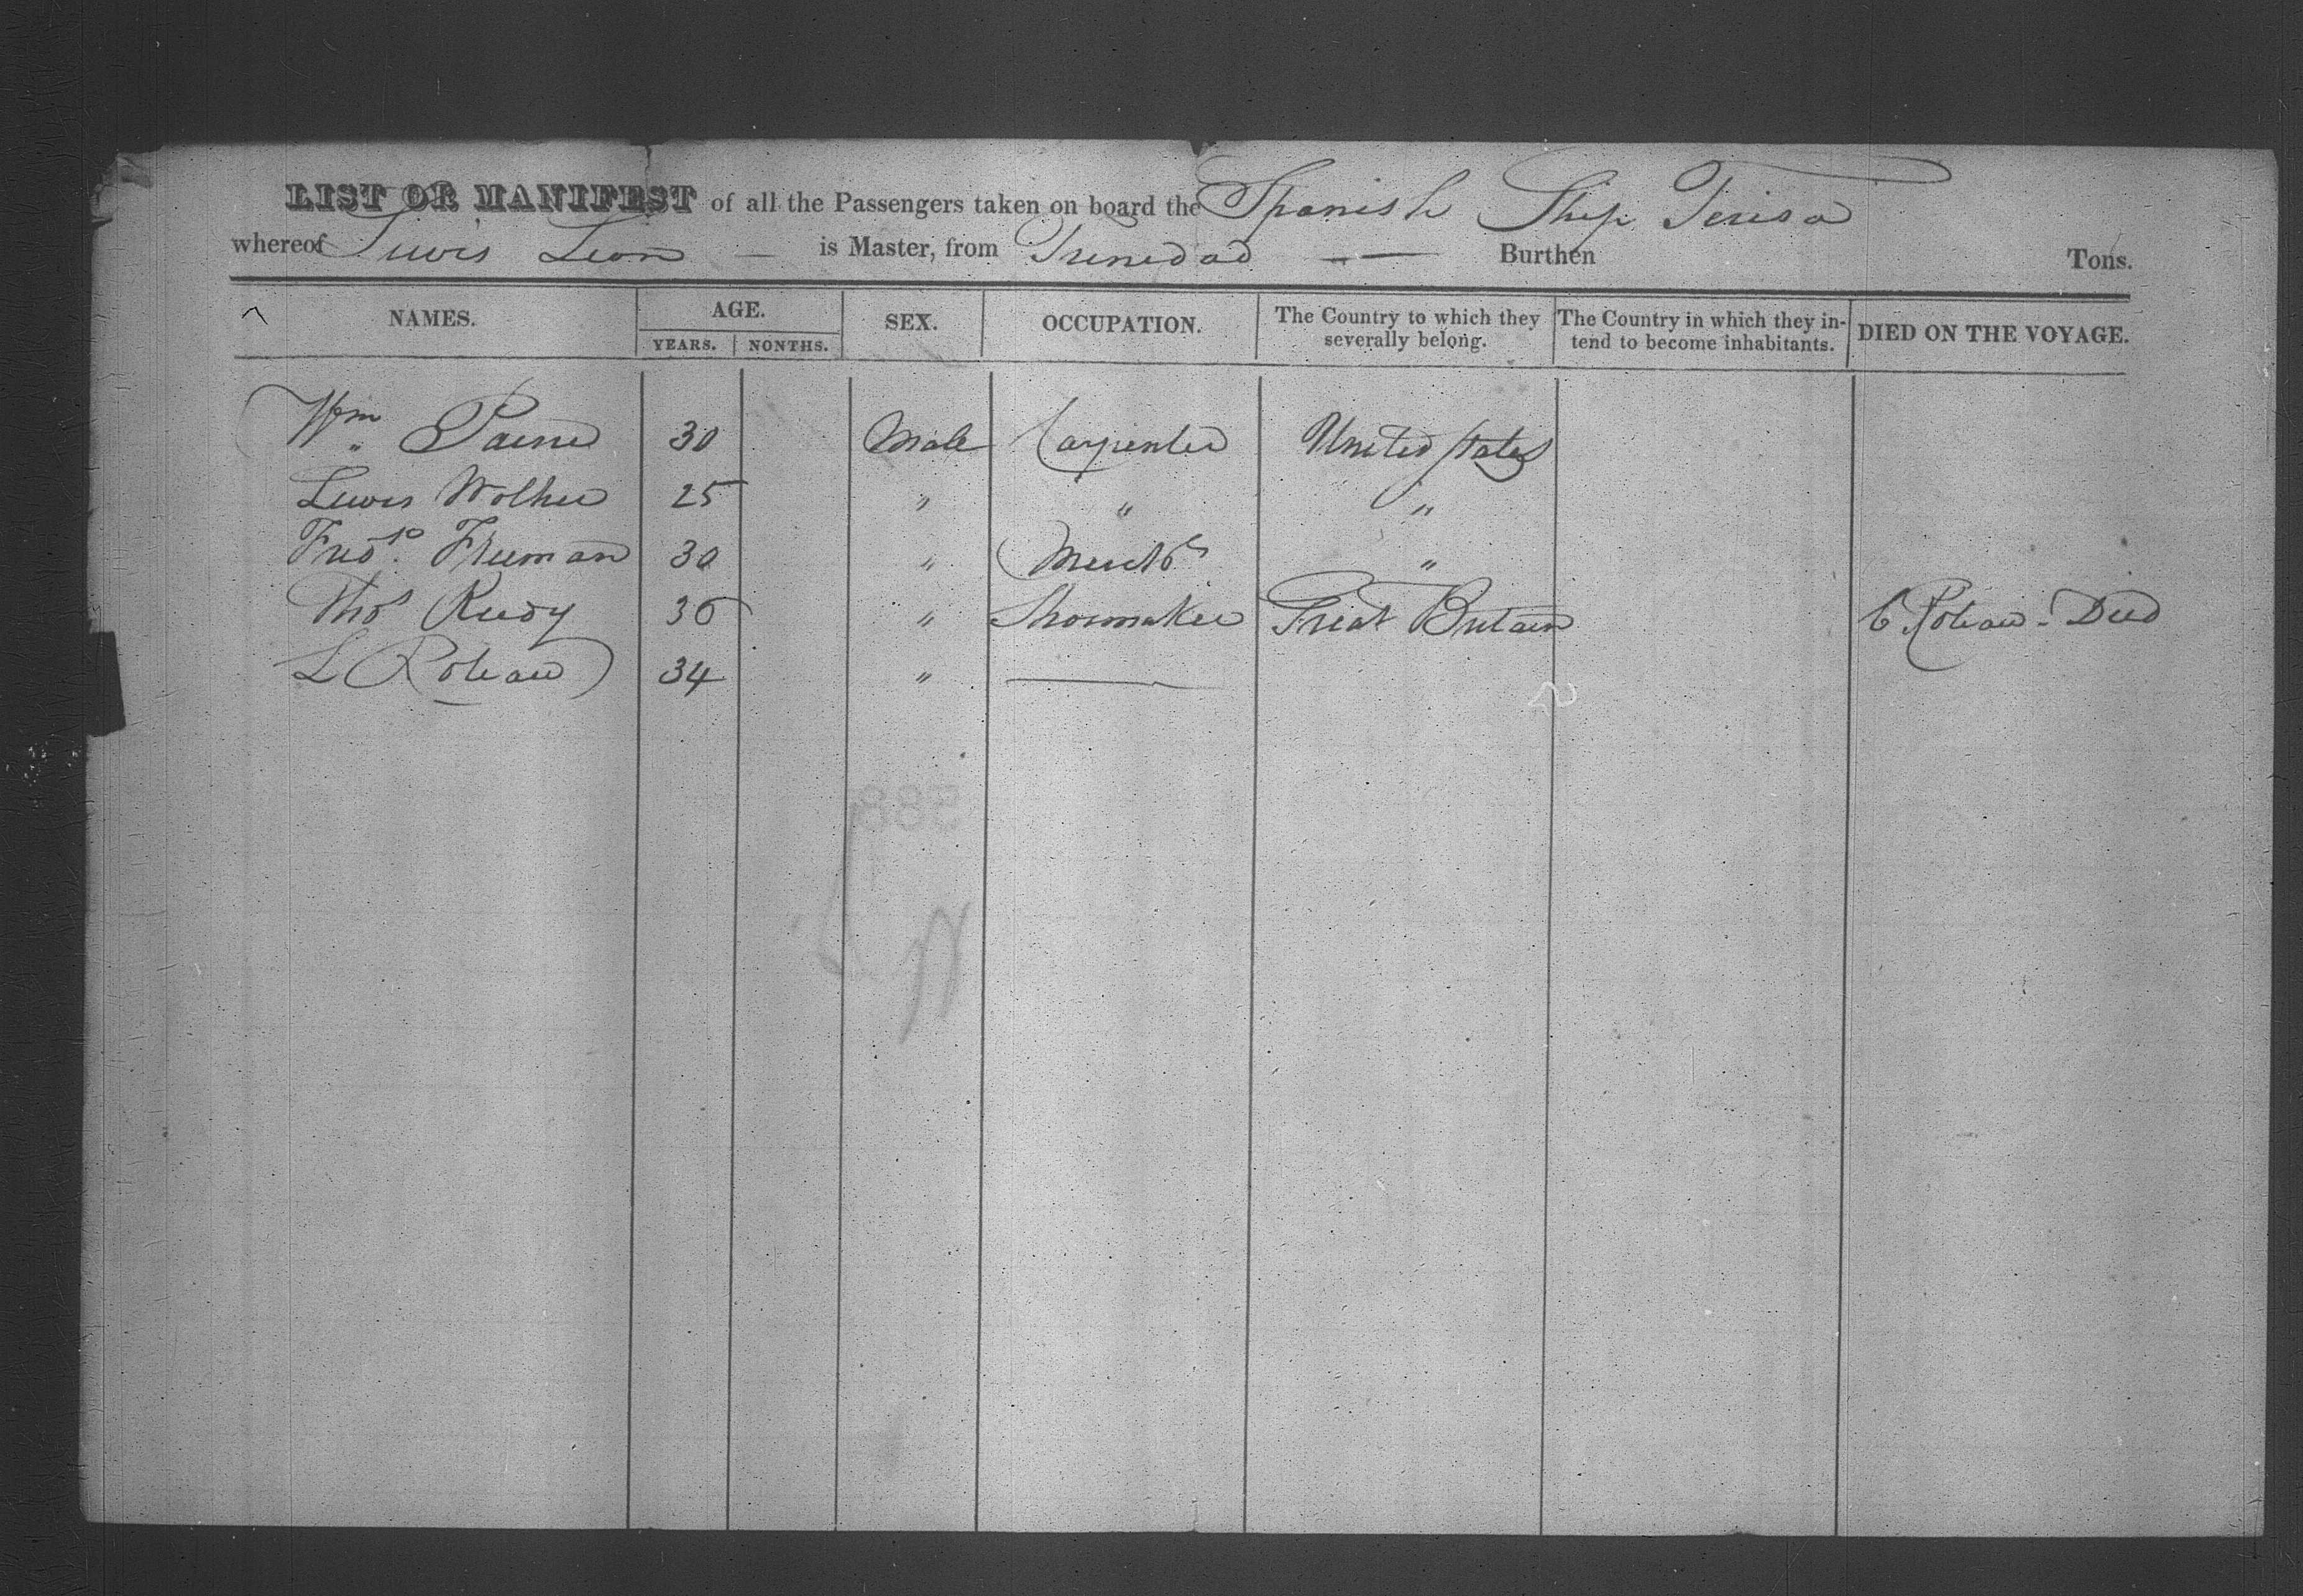 LIST OR MANIFEST of all the Passengers taken on board the Spanish Ship Teresa
whereof Lewis Leon — is Master, from Trinedad — Burthen Tons.
NAMES. AGE. SEX. OCCUPATION. The Country to which they severally belong. The Country in which they intend to become inhabitants. DIED ON THE VOYAGE.
YEARS. NONTHS.
Wm Paine 30 Male Carpenter United States
Lewis 25 " " "
Fredk. Freeman 30 " Mercht "
Thos Reedy 36 " Shoemaker Great Britain Died
L 34 " —